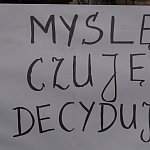 MYSLĘ
CZUJĘ
DECYDUJ